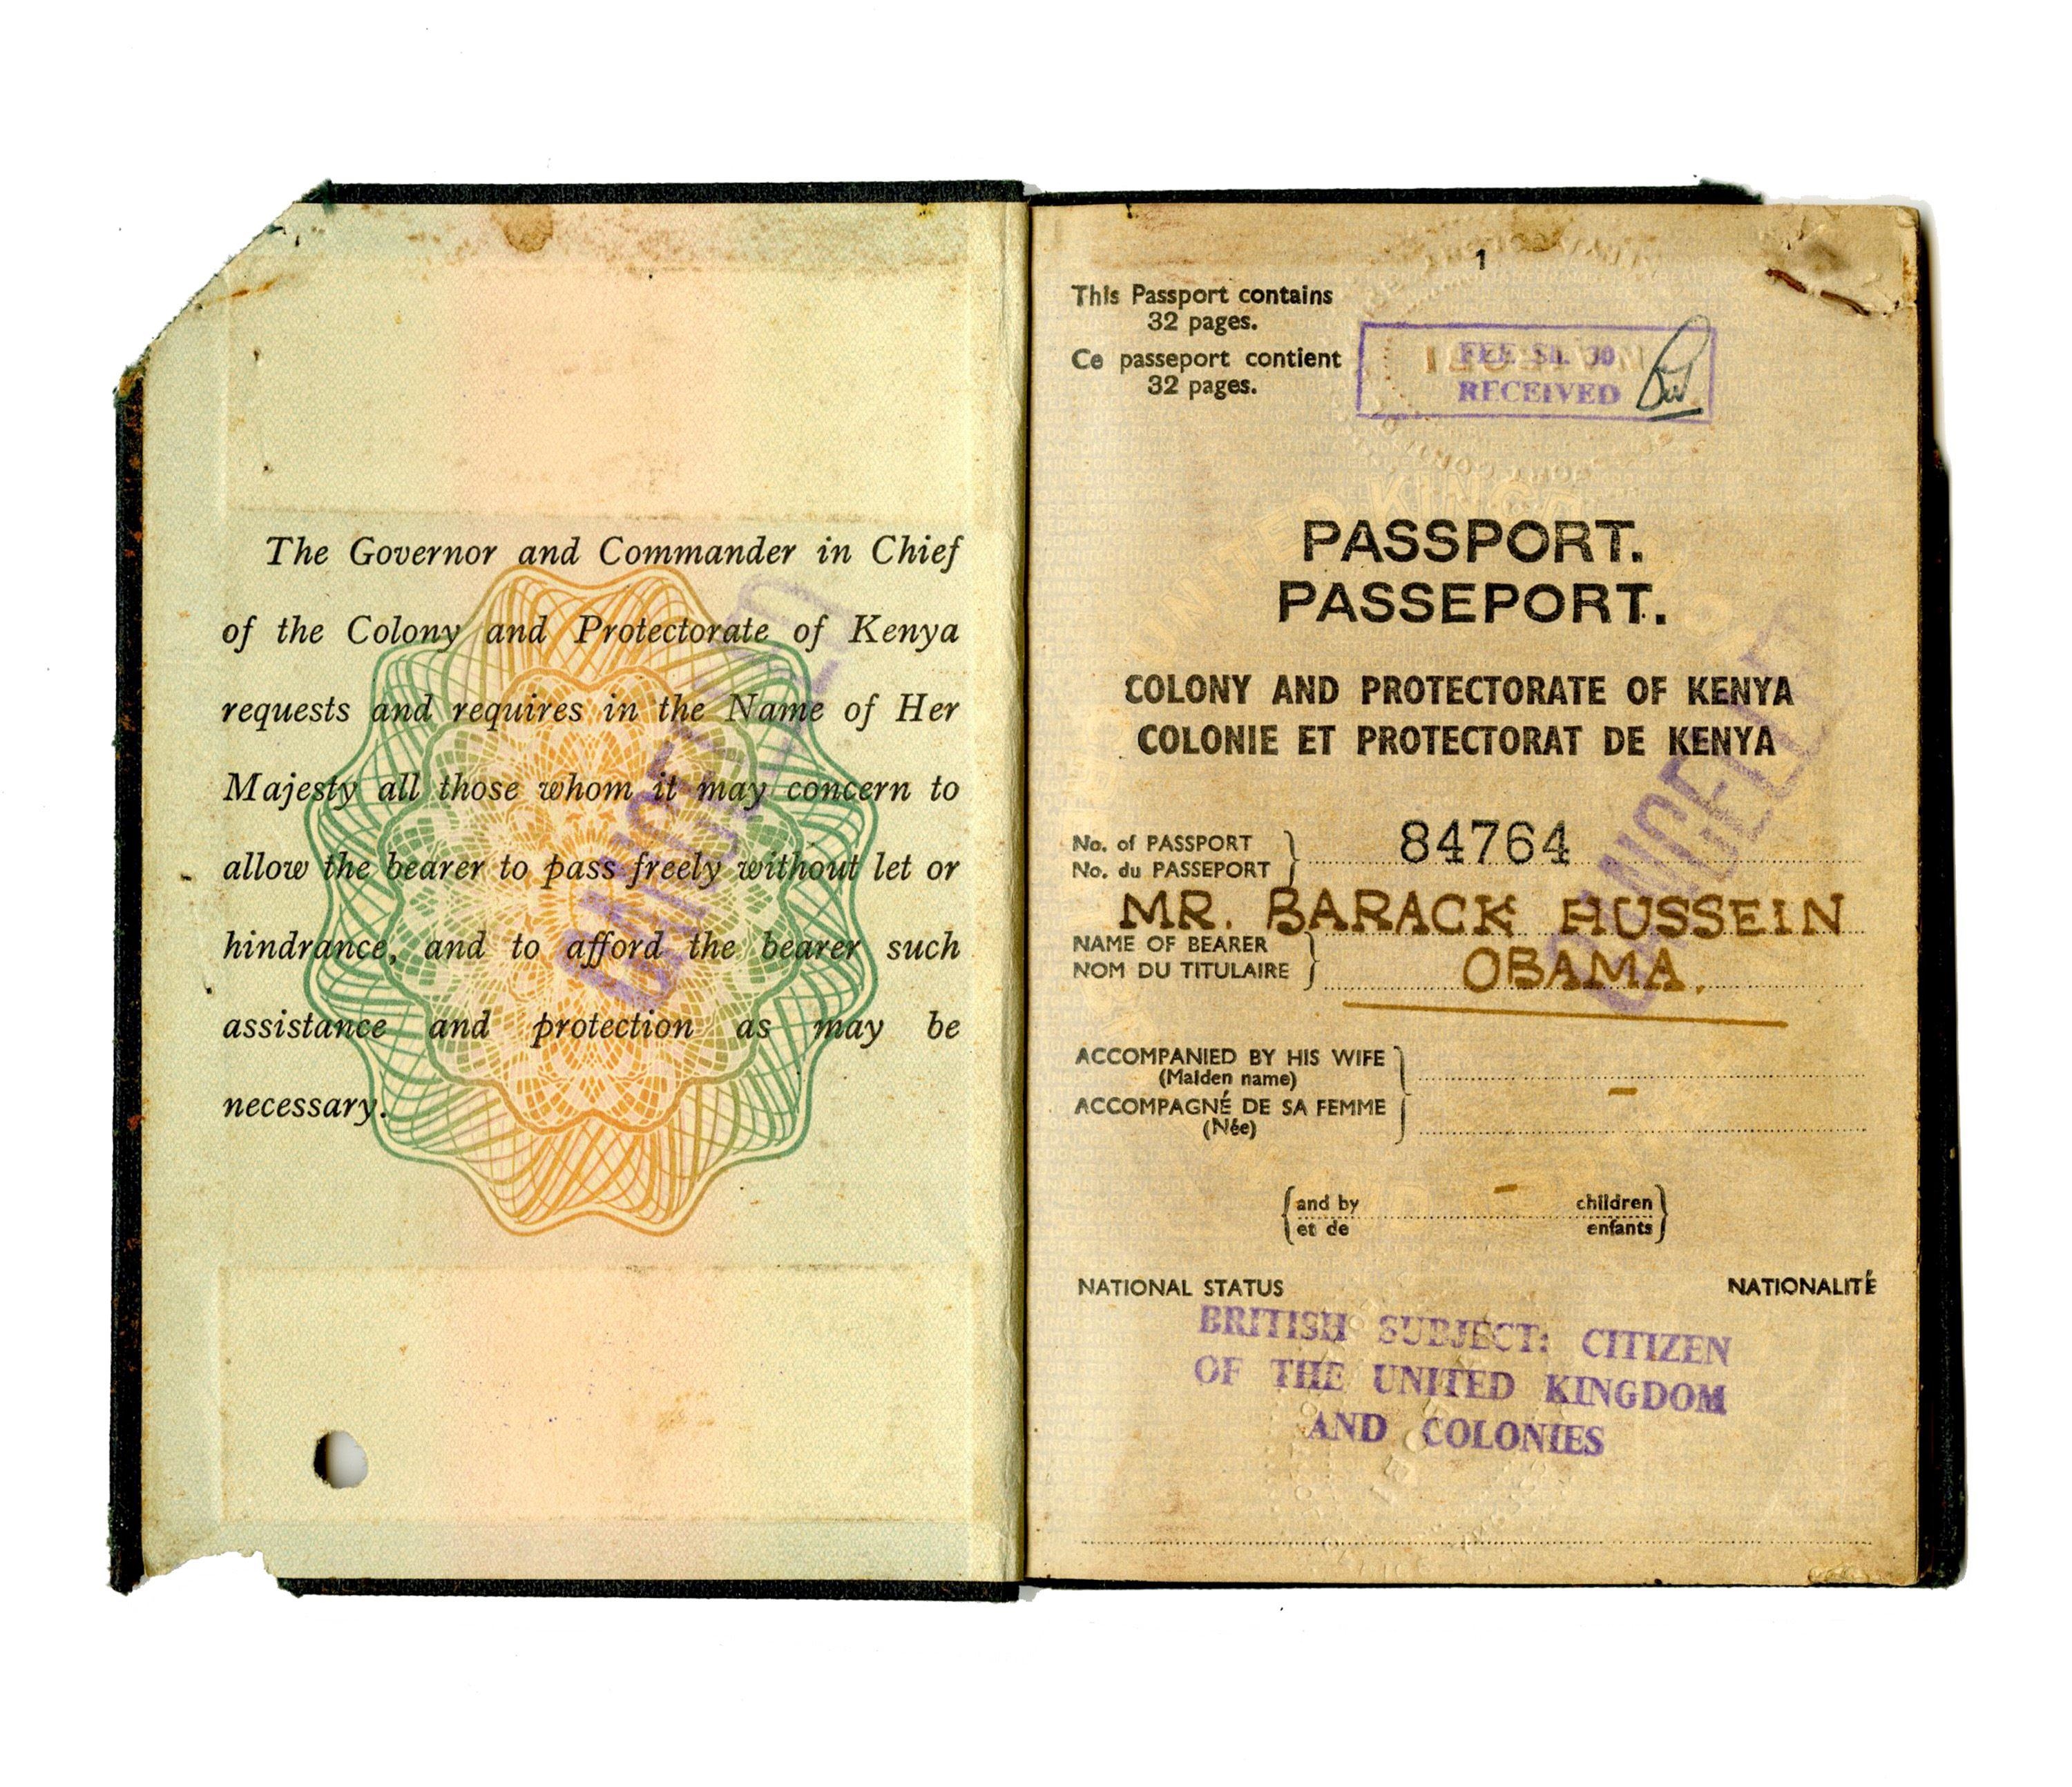 The Governor and Commander in Chief
of the Colony and Protectorate of Kenya
requests and requires in the Name of Her
Majesty all those whom it may concern to
allow the bearer to pass freely without let or
hindrance, and to afford the bearer such
assistance and protection as may be
necessary.
CANCELLED
1
This Passport contains
32 pages.
Ce passeport contient
32 pages.
FEE SH. 30
RECEIVED
PASSPORT.
PASSEPORT.
COLONY AND PROTECTORATE OF KENYA
COLONIE ET PROTECTORAT DE KENYA
CANCELLED
No. of PASSPORT
No. du PASSEPORT
84764
MR. BARACK HUSSEIN
NAME OF BEARER
NOM DU TITULAIRE
OBAMA.
ACCOMPANIED BY HIS WIFE
(Maiden name)
–
ACCOMPAGNÉ DE SA FEMME
(Née)
and by – children
et de enfants
NATIONAL STATUS NATIONALITÉ
BRITISH SUBJECT: CITIZEN
OF THE UNITED KINGDOM
AND COLONIES